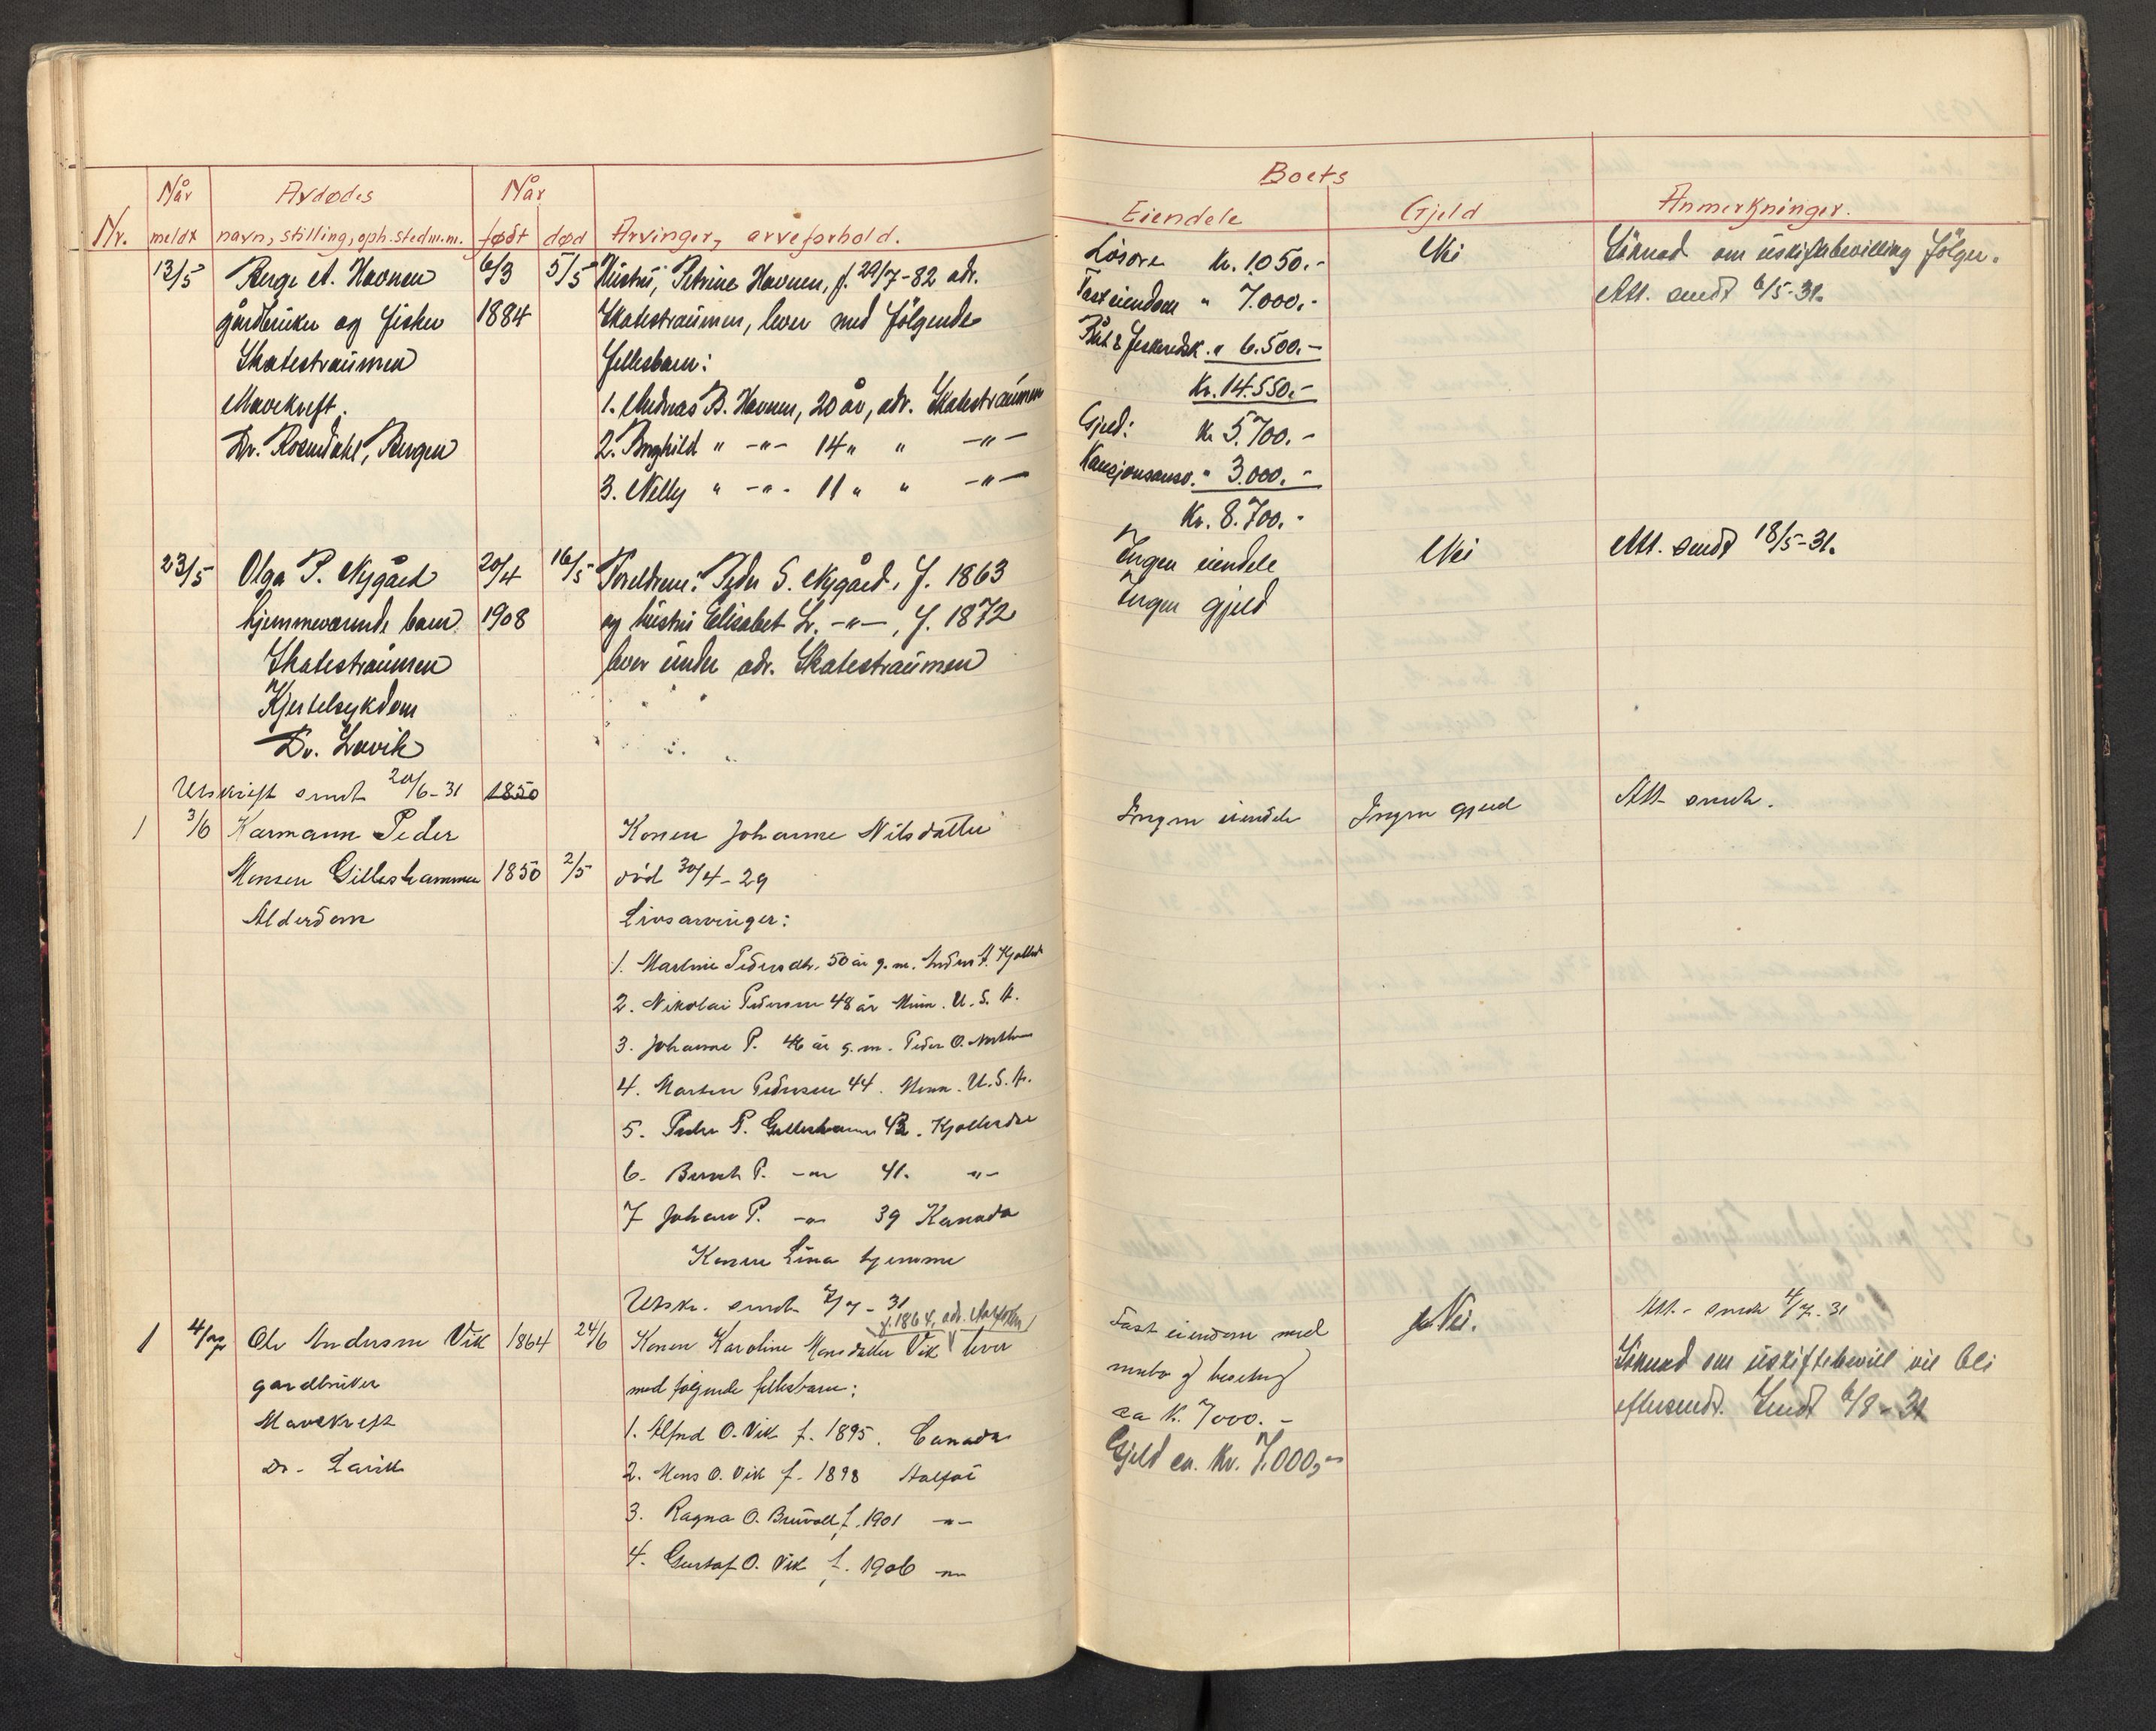 Når
Avdødes
Når
Nr.
meldt
navn, stilling, oph.sted m.m.
født
død
Arvinger, arveforhold.
13/5
Berge A. Havnen
6/3
5/5
Hustru, Petrine Havnen, f. 29/7-82 adr.
gårdbruker og fisker
1884
Skatestraumen, lever med følgende
Skatestraumen
fellesbarn:
Mavekreft.
1. Andreas B. Havnen, 20 år, adr. Skatestraumen
Dr. Rosendahl, Bergen
2. Borghild " -"- 14 " " -"-
3. Nelly " -"- 11 " " -"-
23/5
Olga P. Nygård
20/4
16/5
Foreldrene: Peder S. Nygård, f. 1863
hjemmeværende barn
1908
og hustru Elisabet L. -"-, f. 1872
Skatestraumen
lever under adr. Skatestraumen
Kjertelsykdom
Dr. Lavik
Utskrift sendt 20/6-31
1850
1
3/6
Karmann Peder
Konen Johanne Nilsdatter
Monsen Gilleshammer
1850
2/5
död 30/4-29
Alderdom
Livsarvinger:
1. Martine Pedersdtr. 50 år g.m. Anders A.
2. Nikolai Pedersen 48 år Minn. U.S.A.
3. Johanne P. 46 år g.m. Peder O.
4. Martin Pedersen 44. Minn. U.S.A.
5. Peder P. Gilleshammer 42.
6. Bernt P. -"- 41. -"-
7 Johan P. -"- 39 Kanada
Konen Lina hjemme
Utskr. sendt 7/7-31
f. 1864, adr.
1
Ole Andersen Vik
1864
24/6
Konen Karoline Monsdatter Vik lever
gardbruker
med følgende fellesbarn:
Mavekreft
1. Alfred O. Vik f. 1895. Canada
Dr. Lavik
2. Mons O. Vik f. 1898 Aalfot
3. Ragna O. f. 1901 -"-
4. Gustaf O. Vik f. 1906 -"-
Boets
Eiendele
Gjeld
Anmerkninger.
Lösøre kr. 1.050.-
Nei
Søknad om uskiftebevilling følger.
Fast eiendom " 7.000.-
Att. sendt 6/5-31.
Båt & fiskeredsk. " 6.500.-
Kr. 14.550.-
Gjeld: Kr 5.700.-
Kausjonsansv. " 3.000.-
Kr. 8.700.-
Ingen eiendele
Nei
Att. sendt 18/5-31.
Ingen gjeld
Ingen eiendele
Ingen gjeld
Att sendt.
Fast eiendom med
Nei.
Att. sendt 4/7-31
ca kr. 7000.-
Søknad om uskiftebevill vil bli
Gjeld ca. kr. 7.000,-
eftersendt. Sendt 6/8-31